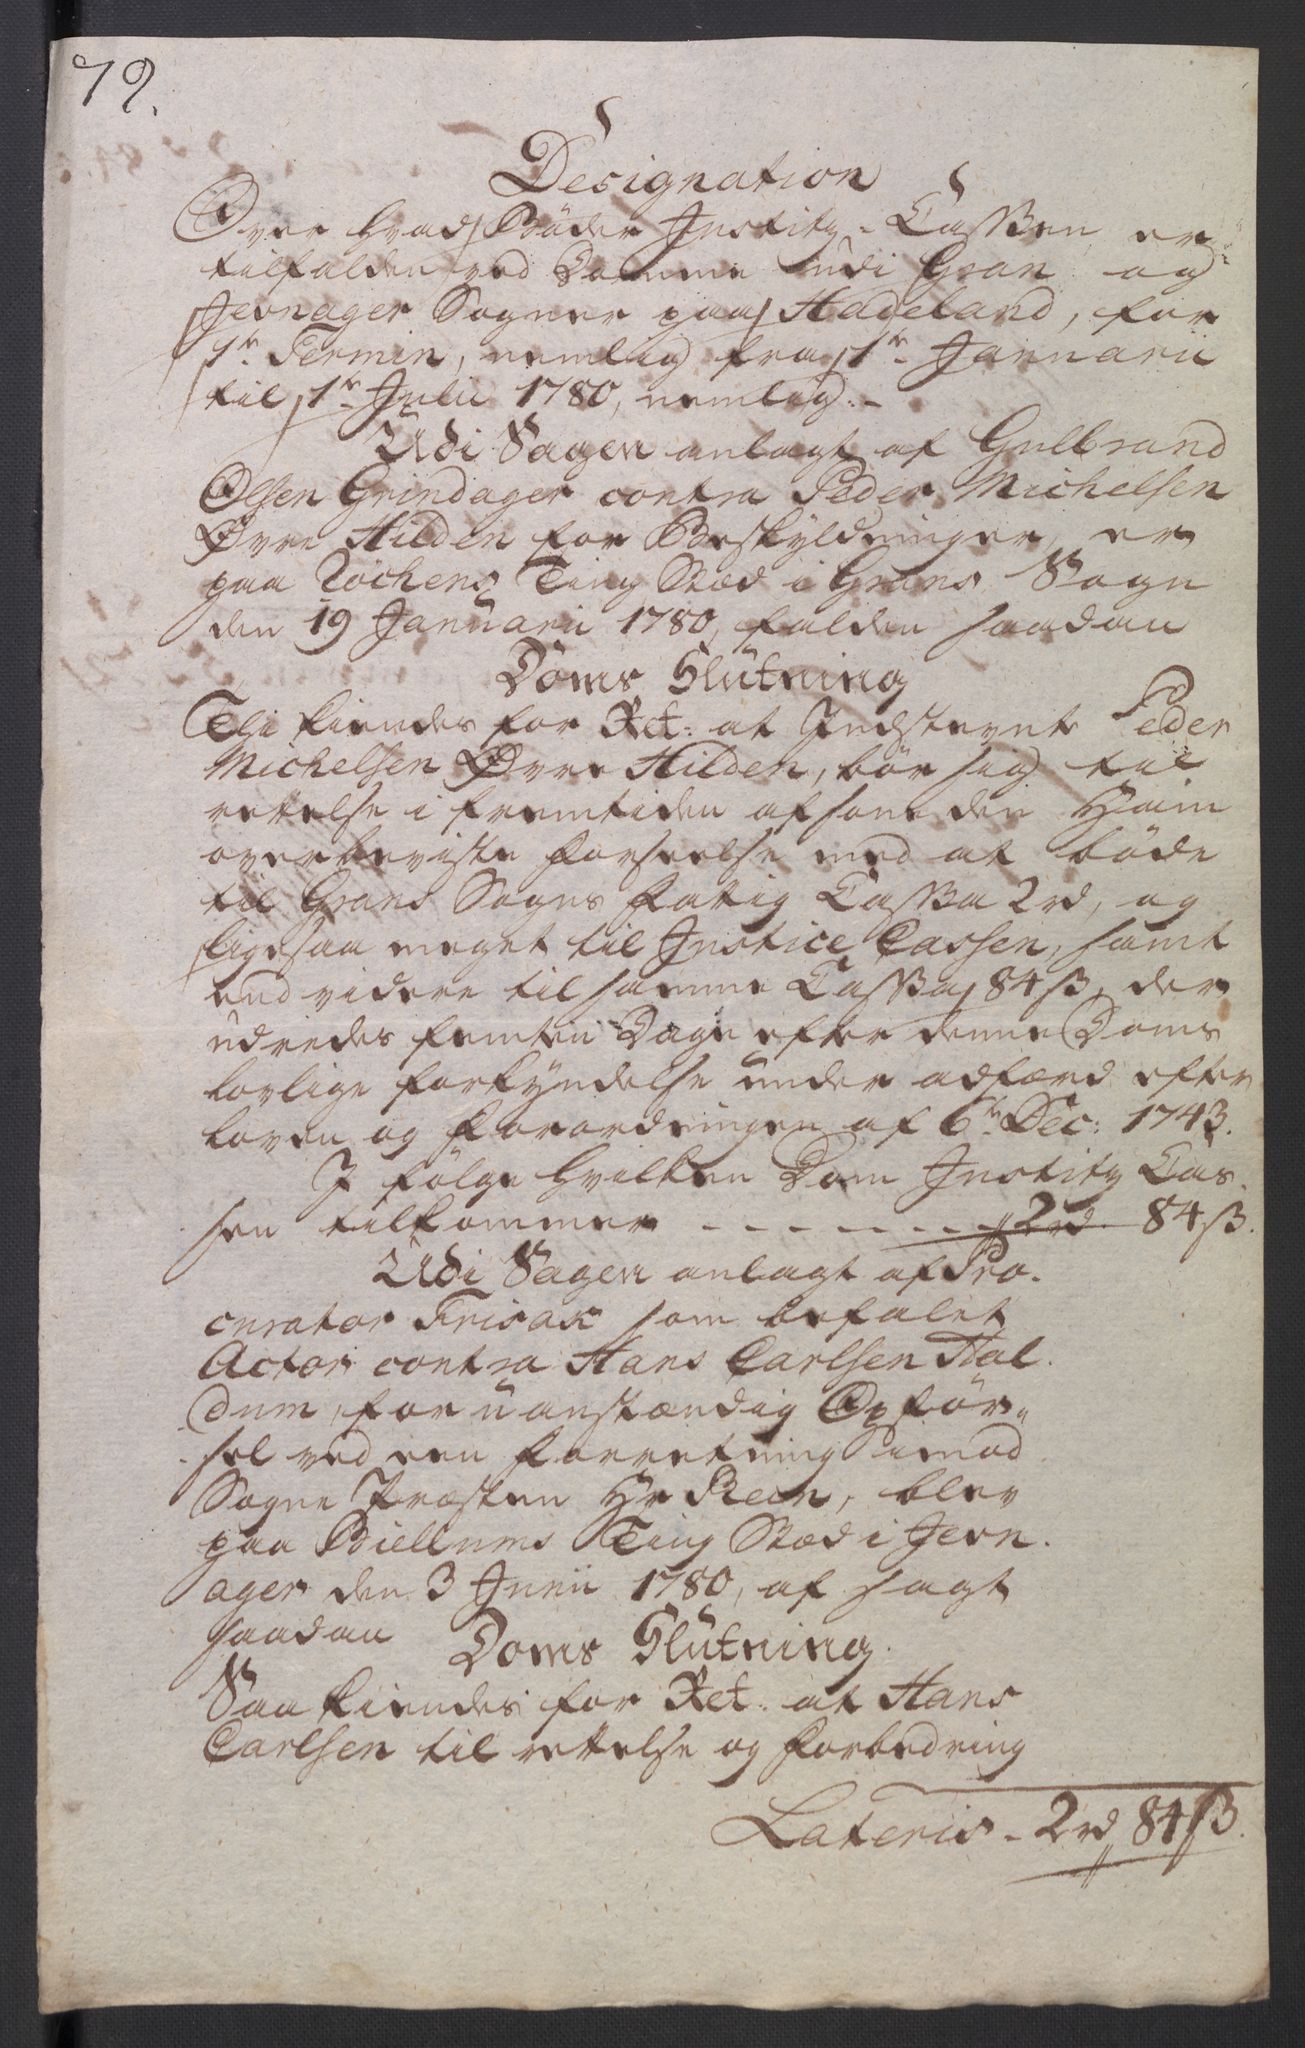 79.
Designation
Over hvad Böder Justitz-Cassen er
tilfalden ved Domme udi Gran og
Jevnager Sogner paa Hadeland, for
1te Termin, nemlig fra 1te Januarii
til 1te Julii 1780, nemlig:-
Udi Sagen anlagt af Gulbrand
Olsen Grindager contra Peder Michelsen
Øvre Hilden for Beskyldninger, er
paa Röchens Ting Stæd i Grans Sogn
den 19 Januarii 1780, falden saadan
Doms Slutning
Thi kiendes for Ret: at Indstevnte Peder
Michelsen Øvre Hilden, bör sig til
rettelse i fremtiden afsone den Ham
overbeviste forseelse med at böde
til Grans Sogns Fattig Cassa 2rd, og
ligesaa meget til Justice Cassen, samt
end videre til samme Cassa 84 s, der
udredes femten Dage efter denne Doms
lovlige forkyndelse under adfærd efter
loven og Forordningen af 6te Dec: 1743.
I fölge hvilken Dom Justitz Cas-
sen tilkommer - - - - - - - 2rd 84 s.
Udi Sagen anlagt af Pro-
curator Frisak som befalet
Actor contra Hans Carlsen Hal-
dum, for uanstændig Opför-
sel ved een Forretning imod
Sogne Præsten Hr Rein, blev
paa Biellums Ting Stæd i Jevn-
ager den 3 Junii 1780, af sagt
saadan Doms Slutning.
Saa kiendes for Ret: at Hans
Carlsen til rettelse og forbedring
Lateris - 2rd 84 s.